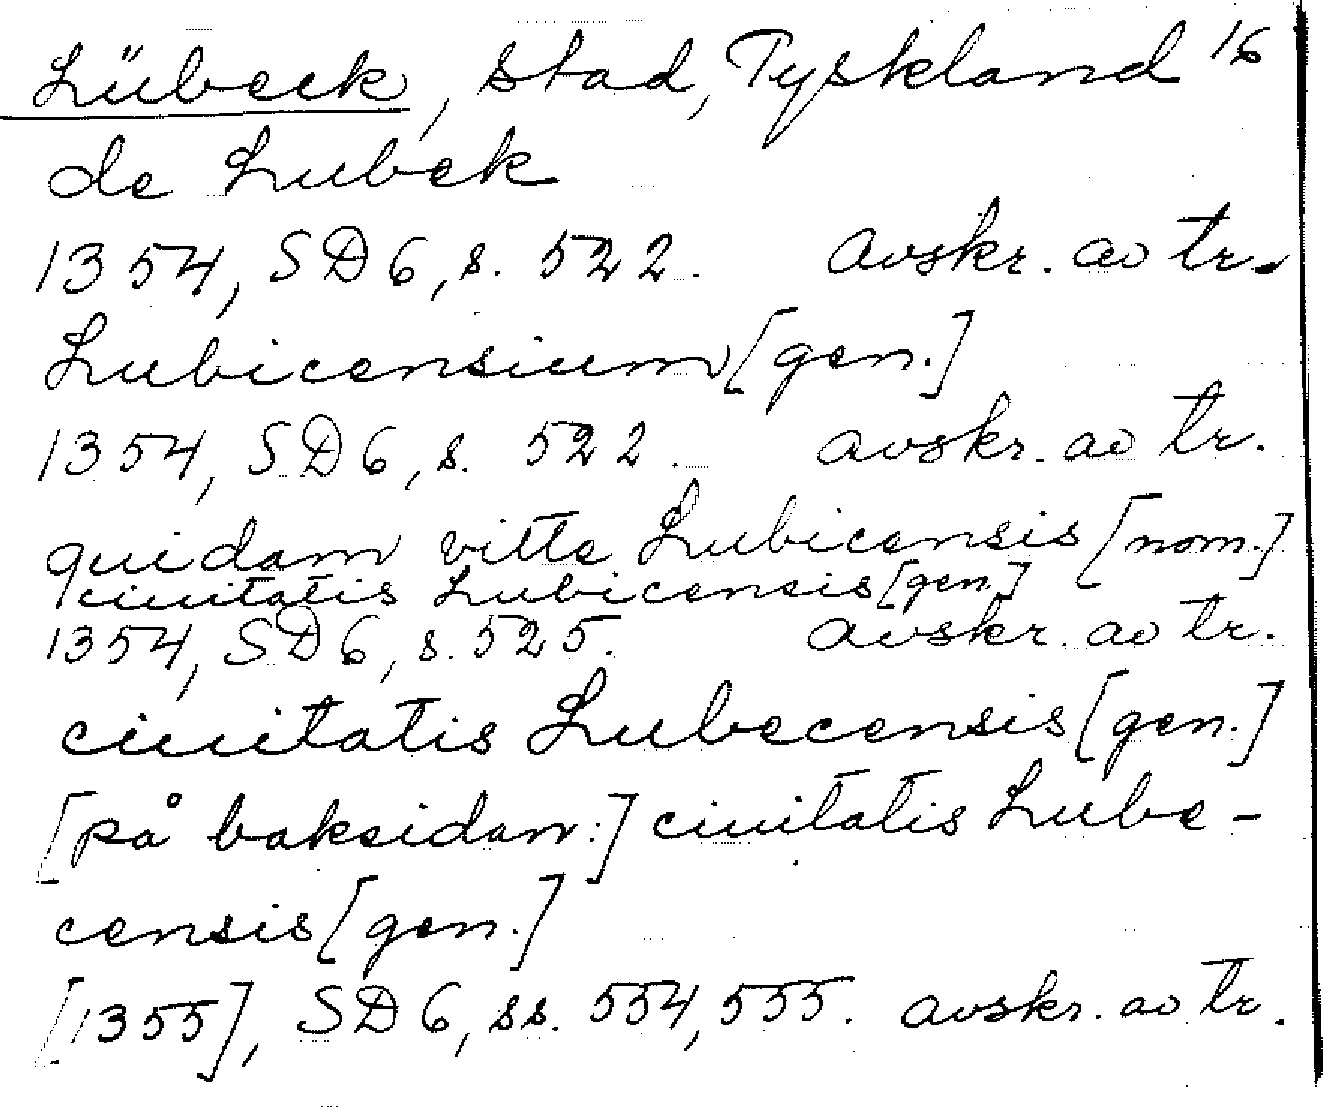 Lübeck, stad, Tyskland 16
de Lubek
1354, SD 6, s. 522. avskr. av tr.
Lubicensium [gen.]
1354, SD 6, s. 522. avskr. av tr.
quidam vitte Lubicensis [nom.]
ciuitatis Lubicensis [gen.]
1354, SD 6, s. 525. avskr. av tr.
ciuitatis Lubecensis [gen.]
[på baksidan:] ciuitatis Lube-
censis [gen.]
[1355], SD 6, ss. 554, 555. avskr. av tr.